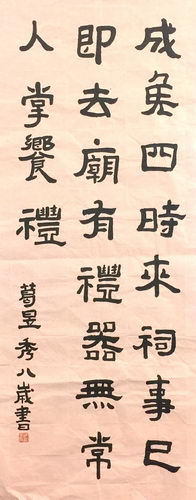 成矦四時來祠事已
即去廟有禮器無常
人掌饗禮
葛昱秀八歲書